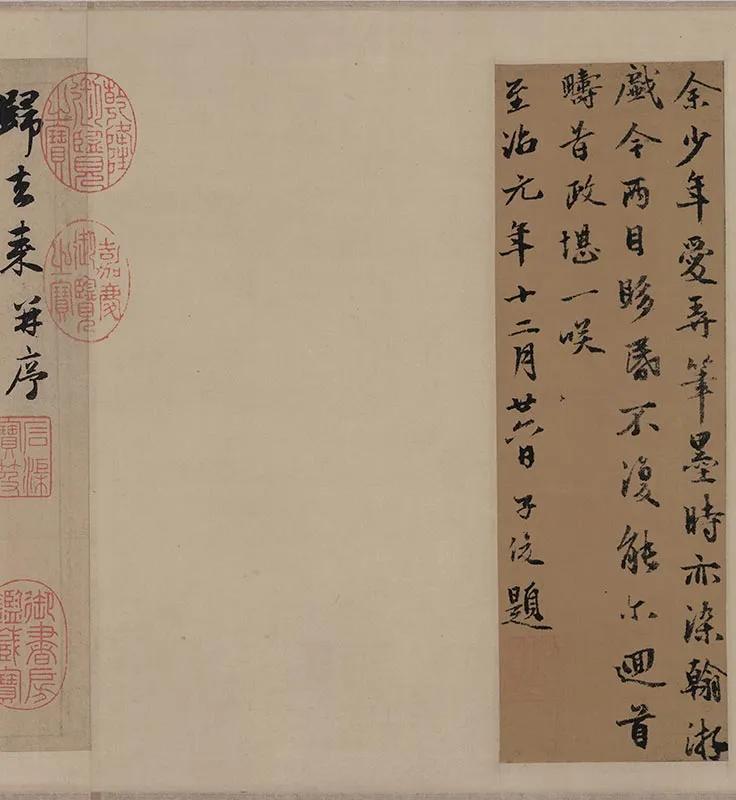 余少年愛弄筆墨時亦染翰游
戲今兩目眵昏不復能尓迴首
疇昔政堪一咲
至治元年十二月廿六日子俊題
乾隆御覽之寶
嘉慶御覽之寶
歸去來并序
石渠寶笈
御書房鑑藏寶